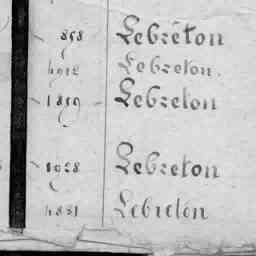 898 Lebréton
1912 Lebreton.
1899 Lebreton
1928 Lebreton
1831 Lebreton